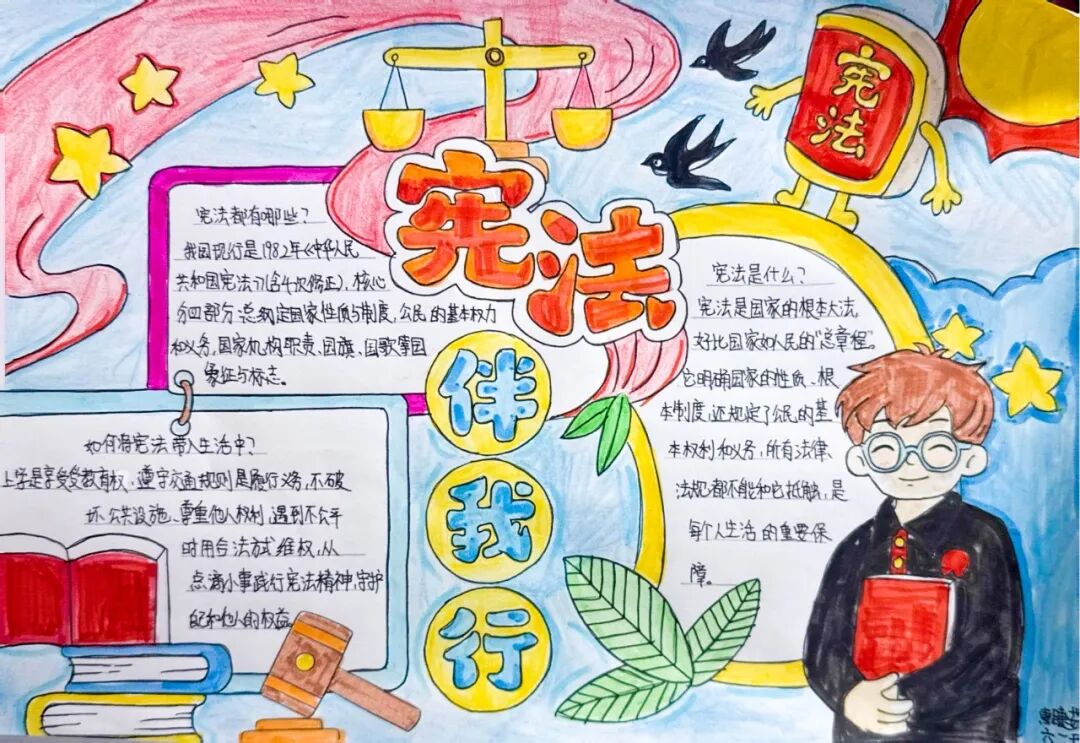 宪法
宪法
伴
我
行
宪法都有哪些?
我国现行是1982年《中华人民
共和国宪法》(含4次修正),核心
分四部分:总纲定国家性质与制度,公民的基本权力
和义务,国家机构职责、国旗、国歌等国
象征与标志。
如何将宪法带入生活中?
上学是享受受教育权,遵守交通规则是履行义务,不破
坏公共设施、尊重他人权利,遇到不公平
时用合法试维权,从
点滴小事践行宪法精神,守护
和他人的权益
宪法是什么?
宪法是国家的根本大法,
好比国家如人民的"总章程"。
它明确国家的性质、根
本制度,还规定了公民的基
本权利和义务,所有法律、
法规都不能和它抵触,是
每个人生活的重要保
障。